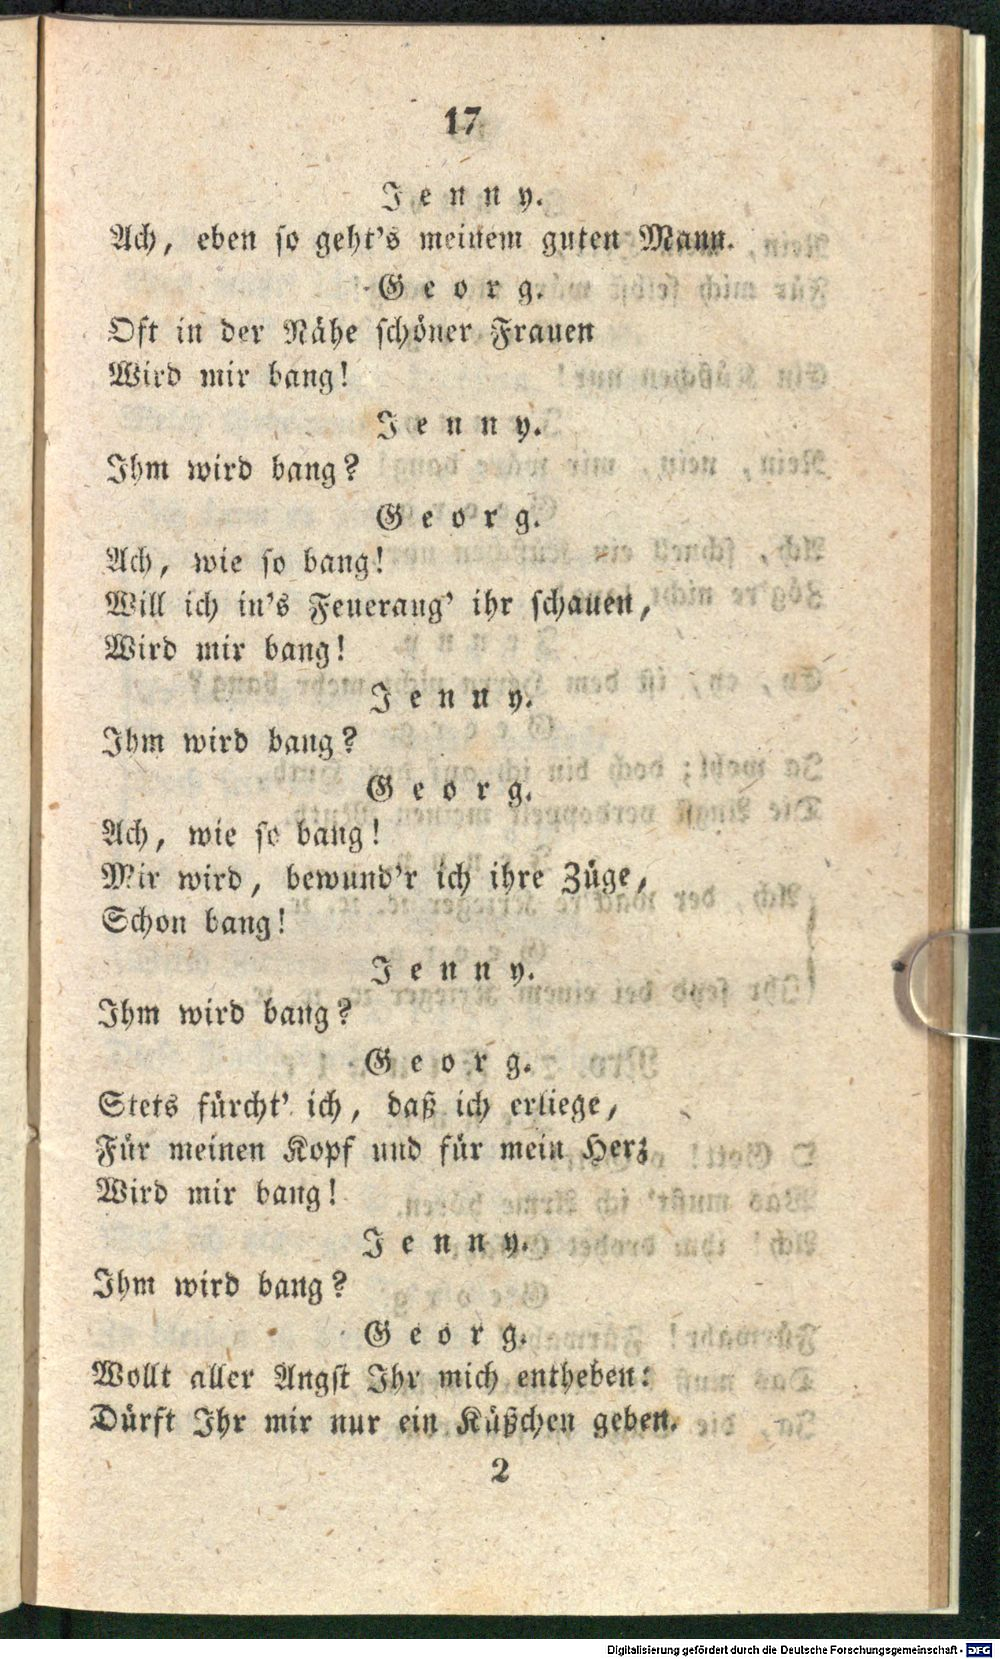 17
Jenny.
Ach, eben so geht's meinem guten Mann.
Georg.
Oft in der Nähe schöner Frauen
Wird mir bang!
Jenny.
Ihm wird bang?
Georg.
Ach, wie so bang!
Will ich in's Feueraug' ihr schauen,
Wird mir bang!
Jenny.
Ihm wird bang?
Georg.
Ach, wie so bang!
Mir wird, bewund'r ich ihre Züge,
Schon bang!
Jenny.
Ihm wird bang?
Georg.
Stets fürcht' ich, daß ich erliege,
Für meinen Kopf und für mein Herz
Wird mir bang!
Jenny.
Ihm wird bang?
Georg.
Wollt aller Angst Ihr mich entheben:
Dürft Ihr mir nur ein Küßchen geben.
2
Digitalisierung gefördert durch die Deutsche Forschungsgemeinschaft - DFG